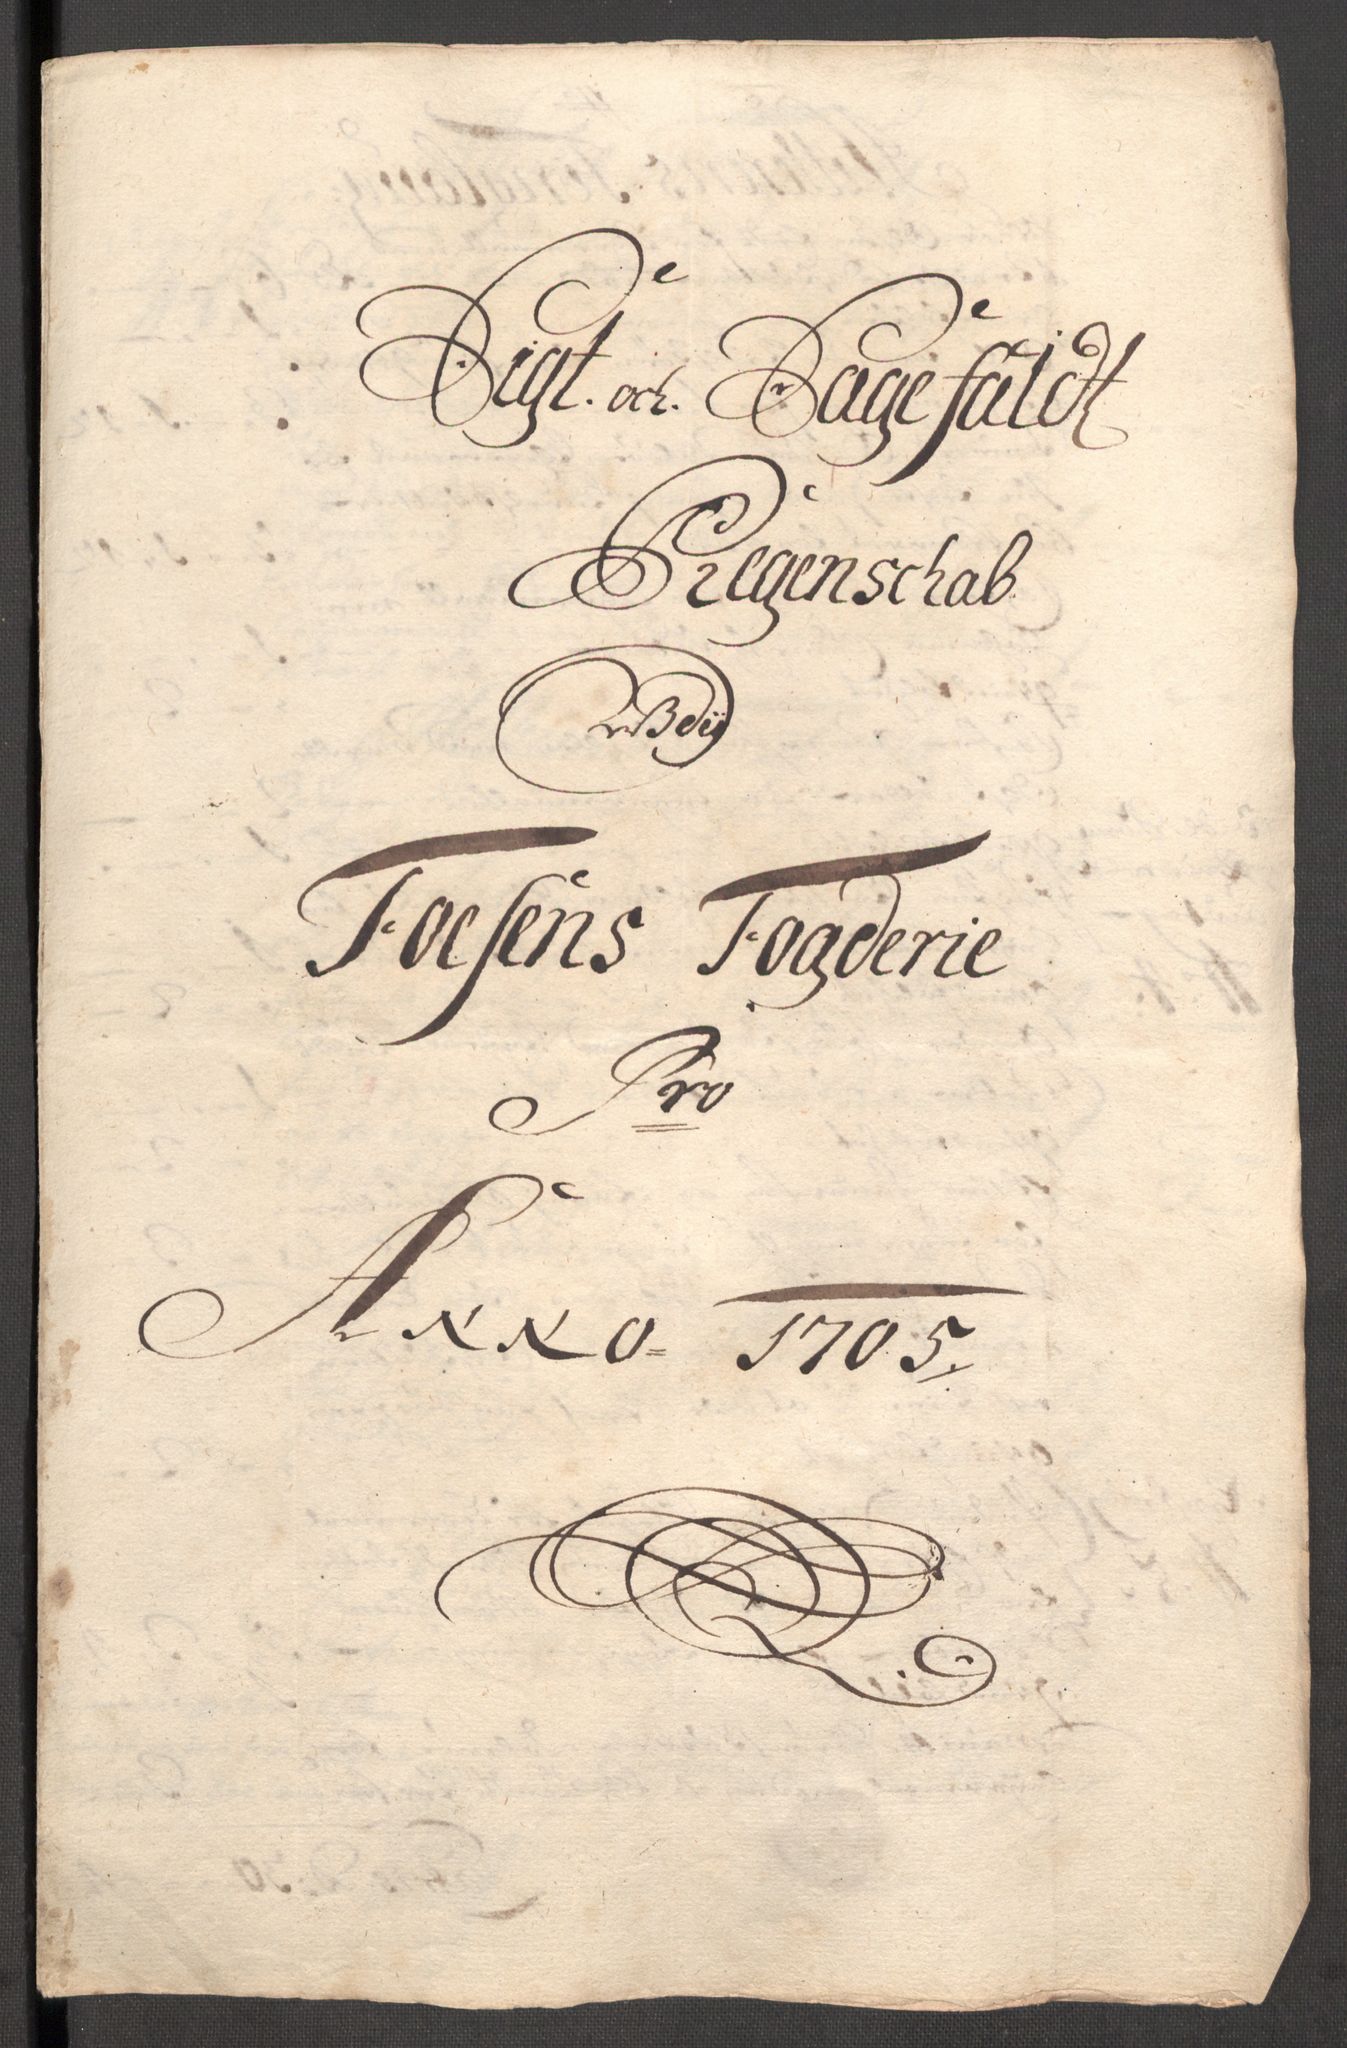 Sigt. och. Sagefaldt
Regenschab
Fosens Fogderie
Pro
Anno 1705.